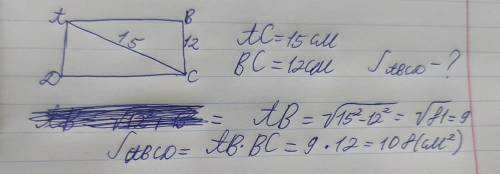 A B
15 12
D C
AC=15см
BC=12см S ABCD-?
= AB=√15²-12²=√81=9
S ABCD= AB·BC=9·12=108(см²)